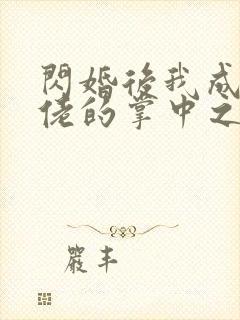 閃婚後我成
佬的掌中之
嚴丰